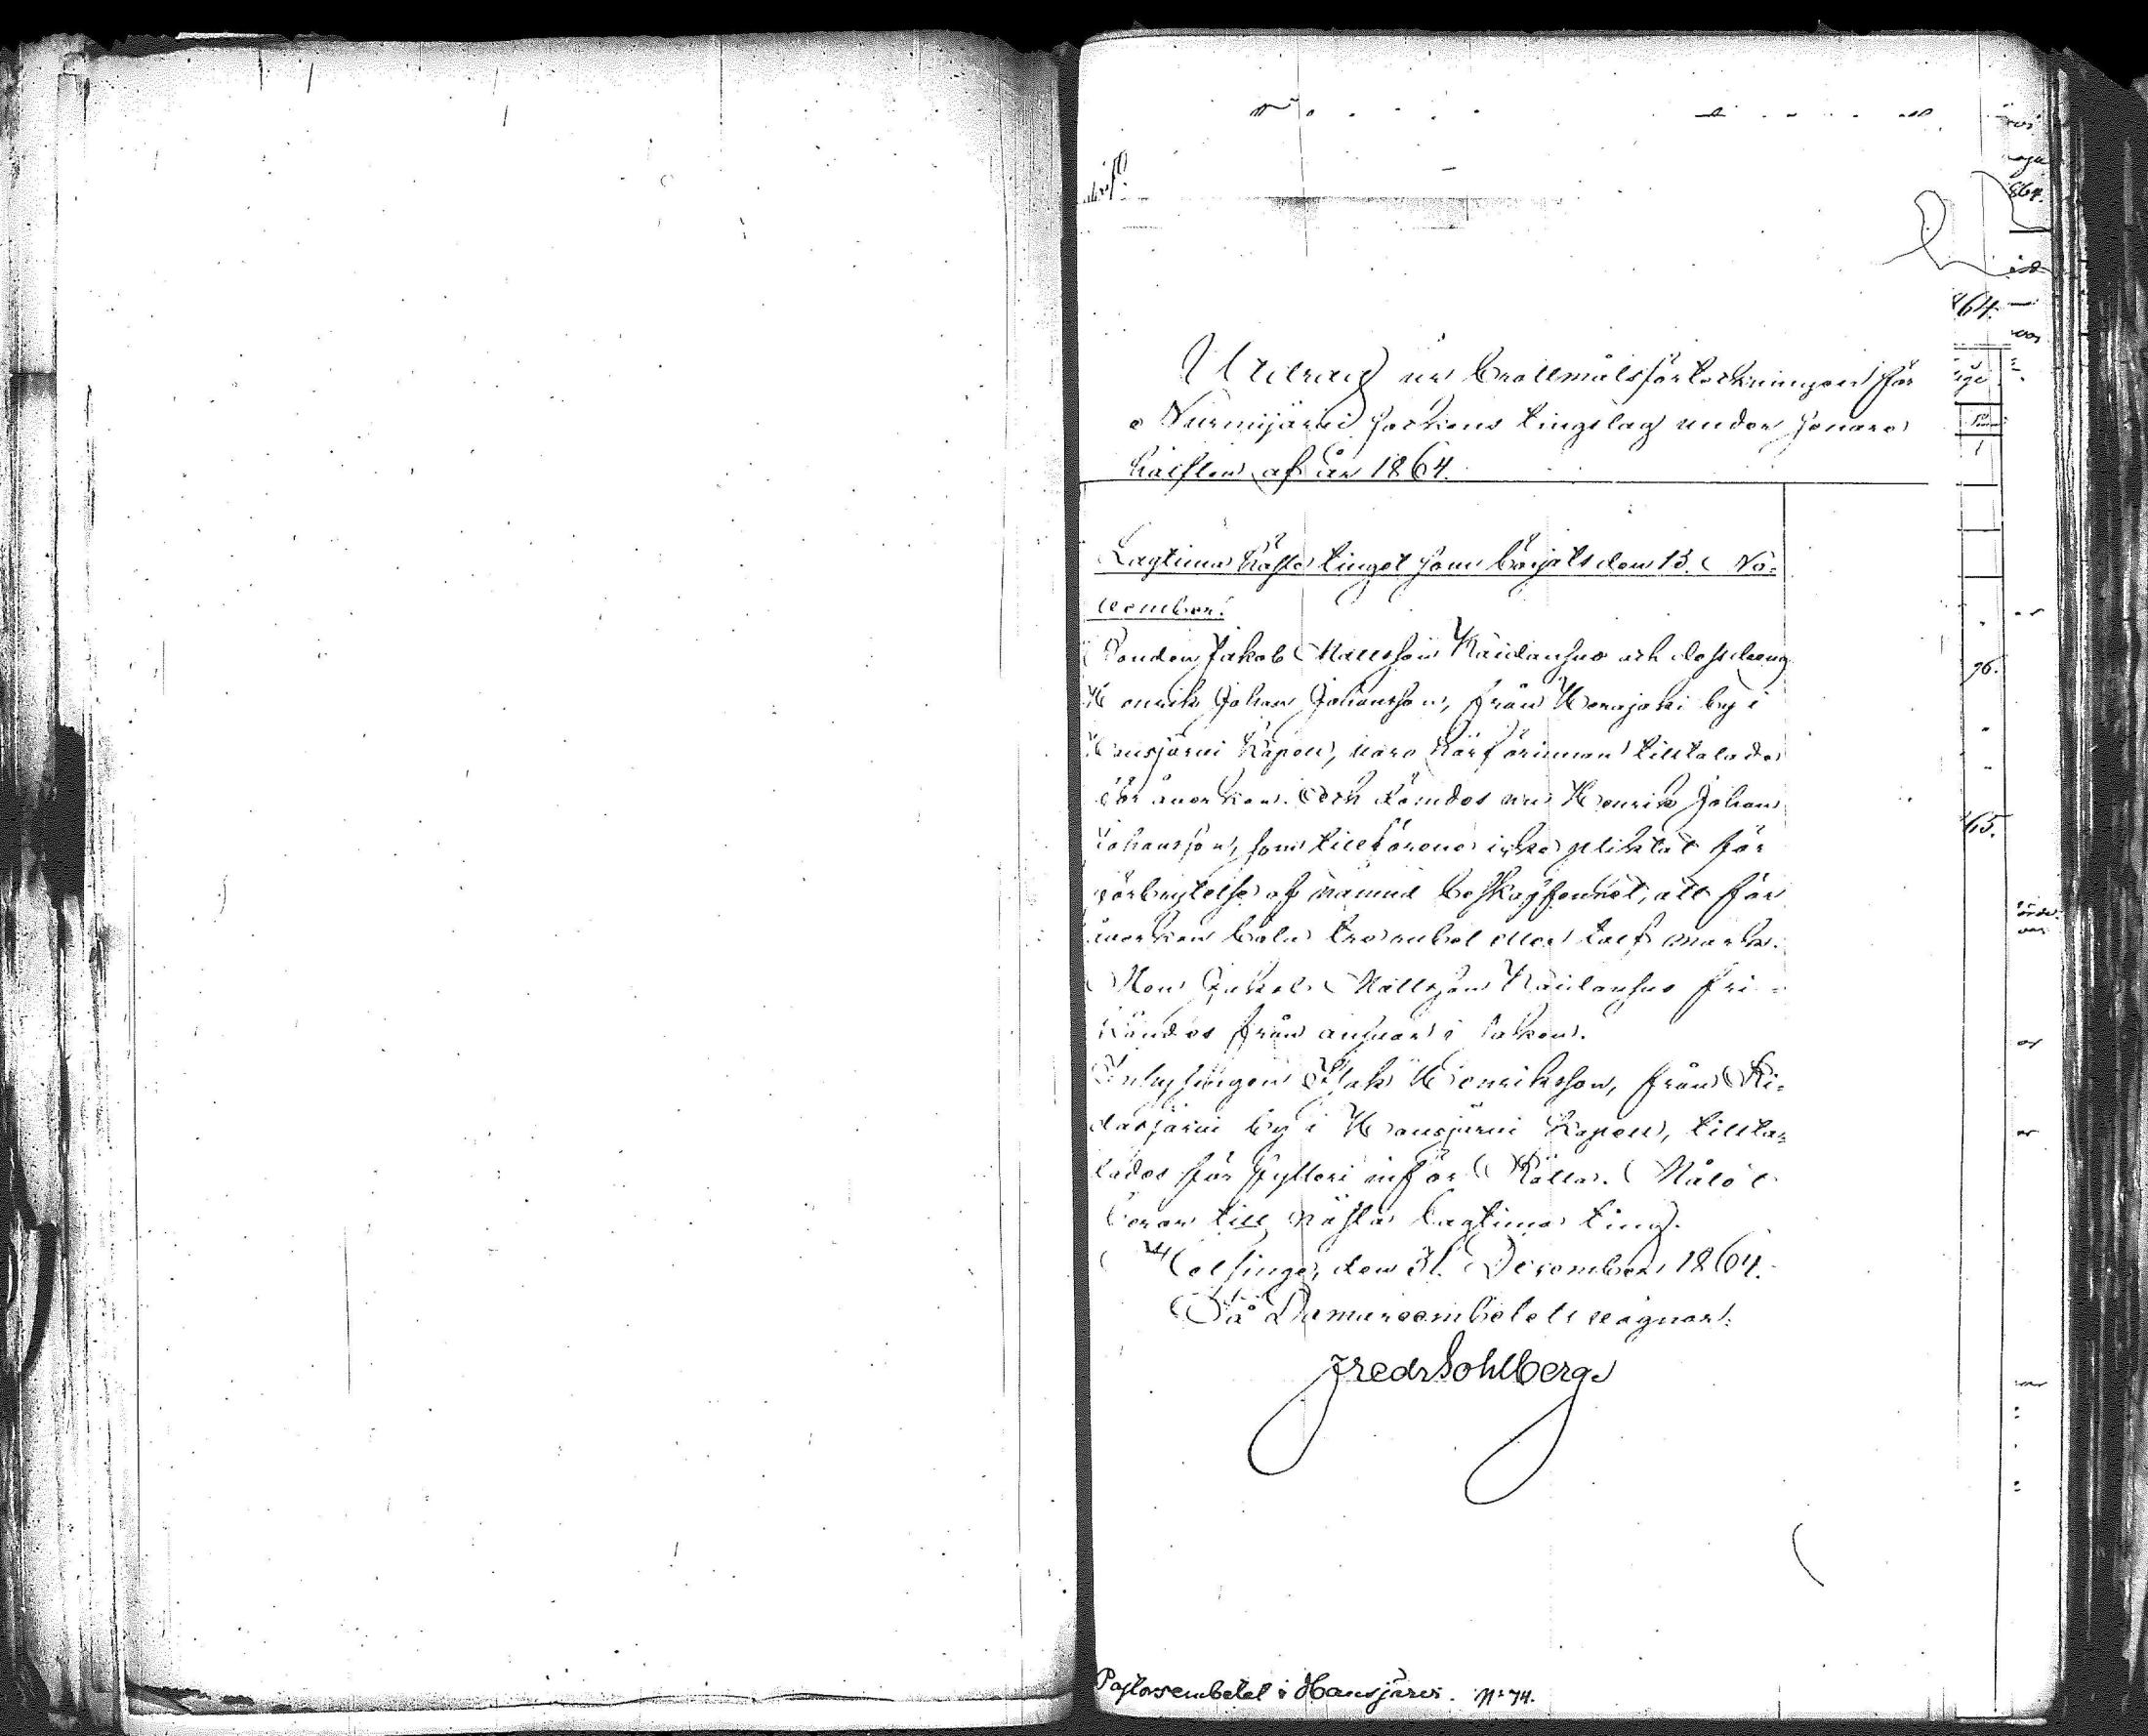 Utdrag ur brottmålsförteckningen för
Nurmijärvi sockens tingslag under senare
hälften af år 1864.
Lagtima höste tinget som börjats den 15. No=
vember.
Bonden Jakob Mattsson Kaidansuo och dess dreng
Henrik Johan Johansson, från Herajoki by i
Hausjärvi Kapell, voro härförinnan tilltalade
för åverkan. Och dömdes nu Henrik Johan
Johansson, som tillförene icke pliktat för
förbrytelse af nämnd beskaffenhet, att för
åverkan böta tre rubel eller tolf mark.
Men Jakob Mattsson Kaidansuo fri=
kändes från ansvar i saken.
Inhysingen Isak Henriksson, från Ri=
dasjärvi by i Hausjärvi Kapell, tillta=
lades för fylleri inför Rätta. Målet
beror till nästa lagtima ting.
Helsinge, den 31. December 1864.
På Domareembetets vägnar:
Fredr Sohlberg
Pastorsembetet i Hausjärvi. No 74.
864.
64.
76.
65.